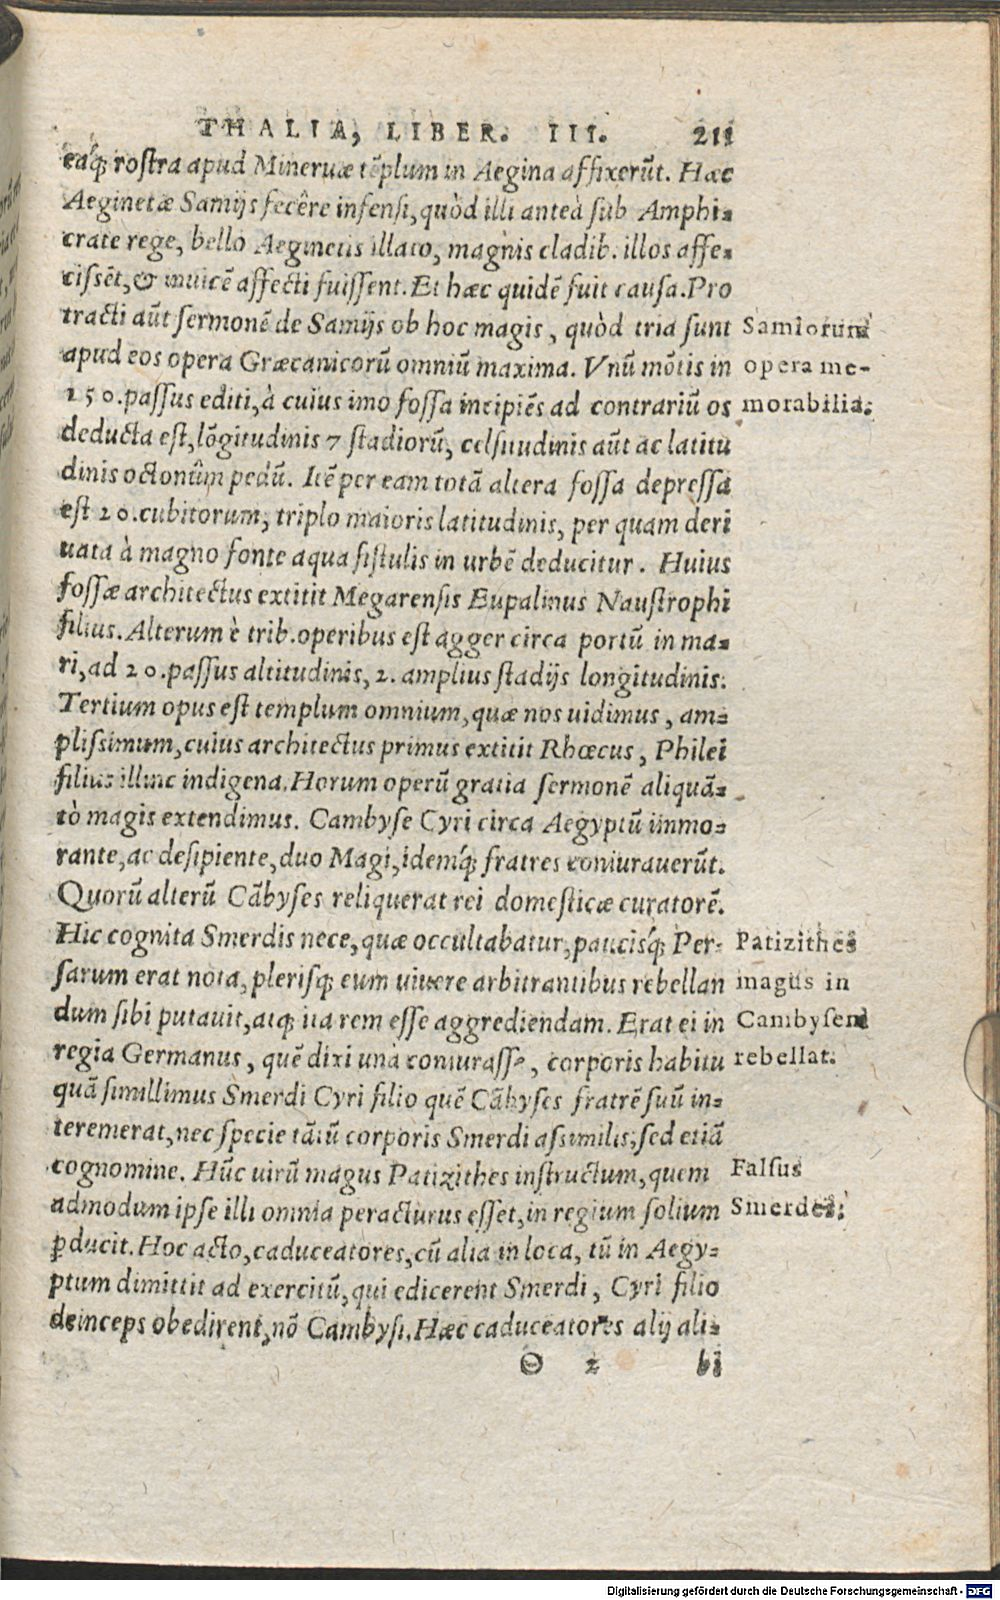 THALIA, LIBER. III. 211
eaq́; rostra apud Mineruæ tẽplum in Aegina affixerũt. Hæc
Aeginetæ Samijs fecêre infensi, quòd illi anteà sub Amphi-
crate rege, bello Aeginetis illato, magnis cladib. illos affe-
cissẽt, & inuicẽ affecti fuissent. Et hæc quidẽ fuit causa. Pro
tracti aũt sermonẽ de Samijs ob hoc magis, quòd tria sunt
Samiorum
apud eos opera Græcanicorũ omniũ maxima. Vnũ mõtis in
opera me-
150. passus editi, à cuius imo fossa incipiẽs ad contrariũ os
morabilia.
deducta est, lõgitudinis 7 stadiorũ, celsitudinis aũt ac latitu
dinis octonûm pedũ. Itẽ per eam totã altera fossa depressa
est 20. cubitorum, triplo maioris latitudinis, per quam deri
uata à magno fonte aqua fistulis in urbẽ deducitur. Huius
fossæ architectus extitit Megarensis Eupalinus Naustrophi
filius. Alterum è trib. operibus est agger circa portũ in ma-
ri, ad 20. passus altitudinis, 2. amplius stadijs longitudinis.
Tertium opus est templum omnium, quæ nos uidimus, am-
plissimum, cuius architectus primus extitit Rhœcus, Philei
filius illinc indigena. Horum operũ gratia sermonẽ aliquã-
tò magis extendimus. Cambyse Cyri circa Aegyptũ immo-
rante, ac desipiente, duo Magi, idemq́; fratres coniurauerũt.
Quorũ alterũ Cãbyses reliquerat rei domesticæ curatorẽ.
Hic cognita Smerdis nece, quæ occultabatur, paucisq́; Per-
Patizithes
sarum erat nota, plerisq; eum uiuere arbitrantibus rebellan
magus in
dum sibi putauit, atq; ita rem esse aggrediendam. Erat ei in
Cambysem
regia Germanus, quẽ dixi una coniurasse, corporis habitu
rebellat.
quã simillimus Smerdi Cyri filio quẽ Cãbyses fratrẽ suũ in-
teremerat, nec specie tãtũ corporis Smerdi assimilis, sed etiã
cognomine. Hũc uirũ magus Patizithes instructum, quem
Falsus
admodum ipse illi omnia peracturus esset, in regium solium
Smerdes.
ꝓducit. Hoc acto, caduceatores, cũ alia in loca, tũ in Aegy-
ptum dimittit ad exercitũ, qui edicerent Smerdi, Cyri filio
deinceps obedirent, nõ Cambysi. Hæc caduceatores alij ali-
Θ 2 bi
Digitalisierung gefördert durch die Deutsche Forschungsgemeinschaft - DFG